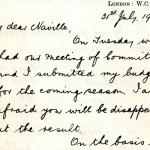 LONDON : W.C.
31st July, 19
y dear Naville,
On Tuesday w
had our meeting of Committ
and I submitted my budg
for the coming season. I a
afraid you will be disappo
at the result.
On the basis